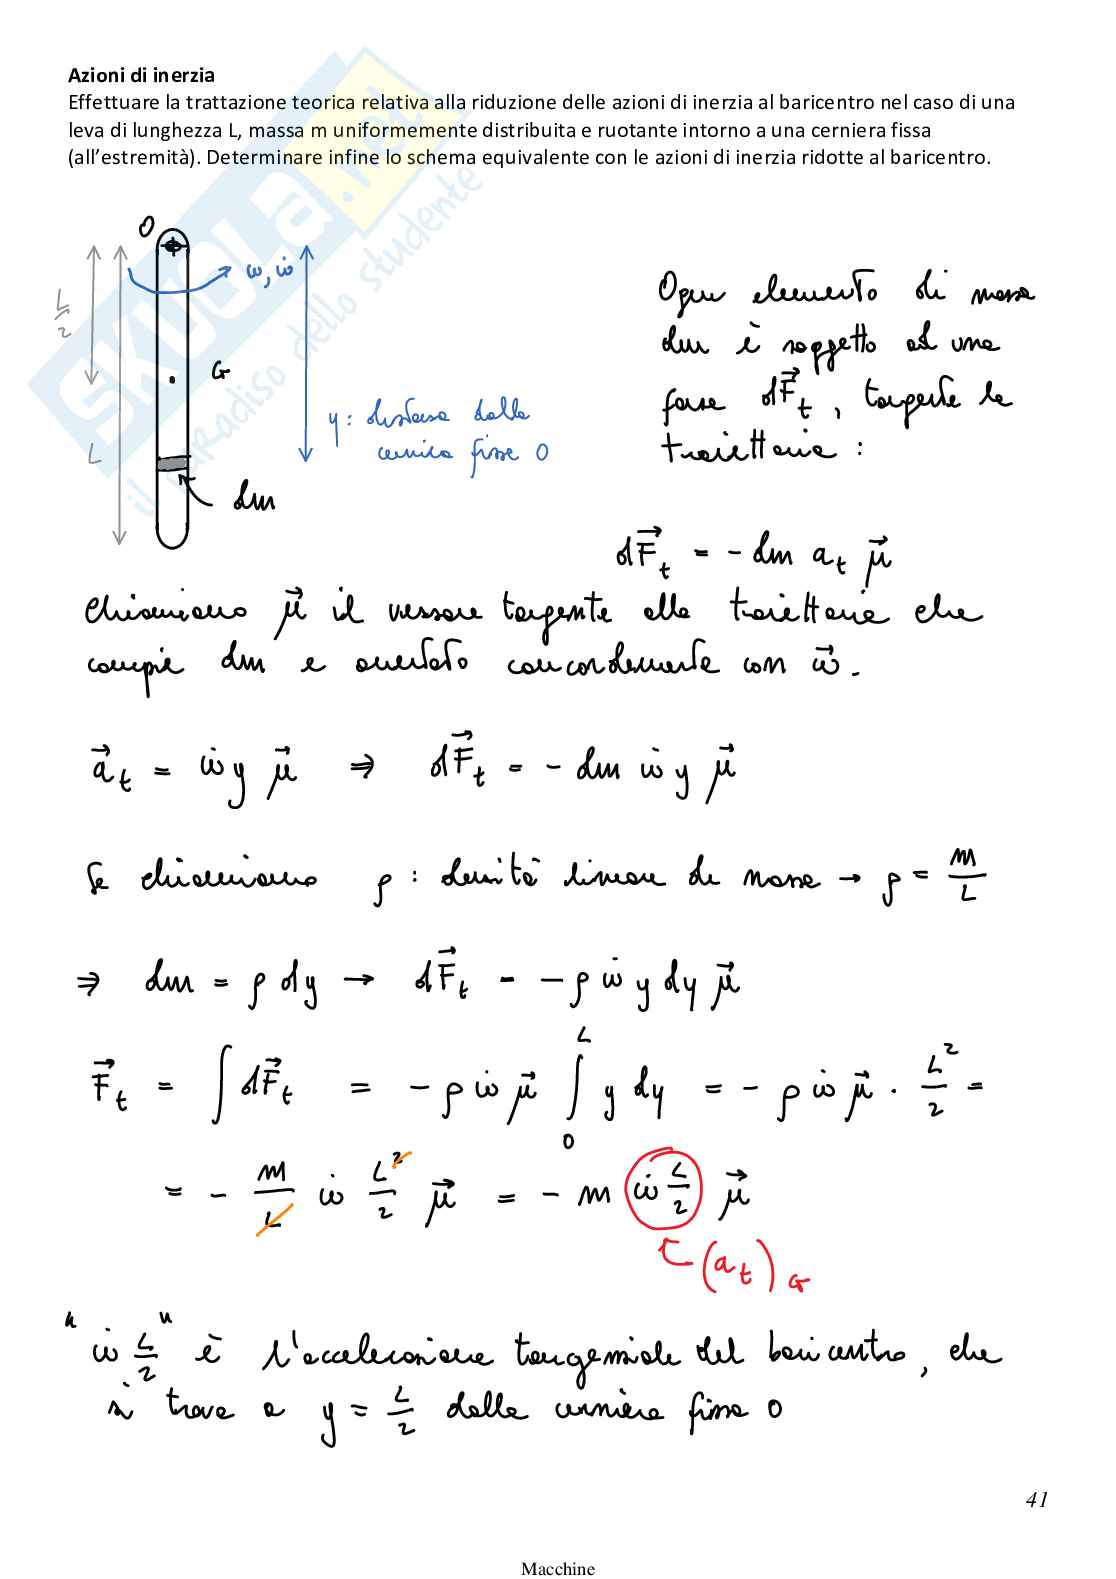 Azioni di inerzia
Effettuare la trattazione teorica relativa alla riduzione delle azioni di inerzia al baricentro nel caso di una
leva di lunghezza L, massa m uniformemente distribuita e ruotante intorno a una cerniera fissa
(all'estremità). Determinare infine lo schema equivalente con le azioni di inerzia ridotte al baricentro.
SKUOLA.net
il paradiso dello studente
O
ω, ω̇
L/2
G
L
y: distanza dalla
cerniera fissa O
dm
Ogni elemento di massa
dm è soggetto ad una
forza dF⃗t, tangente la
traiettoria:
dF⃗t = - dm at μ⃗
Chiamiamo μ⃗ il versore tangente alla traiettoria che
compie dm e orientato concordemente con ω⃗.
a⃗t = ω̇ y μ⃗ ⇒ dF⃗t = - dm ω̇ y μ⃗
Se chiamiamo ρ: densità lineare di massa → ρ = m/L
⇒ dm = ρ dy → dF⃗t = - ρ ω̇ y dy μ⃗
F⃗t = ∫ dF⃗t = - ρ ω̇ μ⃗ ∫₀ᴸ y dy = - ρ ω̇ μ⃗ · L²/2 =
= - m/L ω̇ L²/2 μ⃗ = - m ω̇ L/2 μ⃗
(at)G
"ω̇ L/2" è l'accelerazione tangenziale del baricentro, che
si trova a y = L/2 dalla cerniera fissa O
41
Macchine